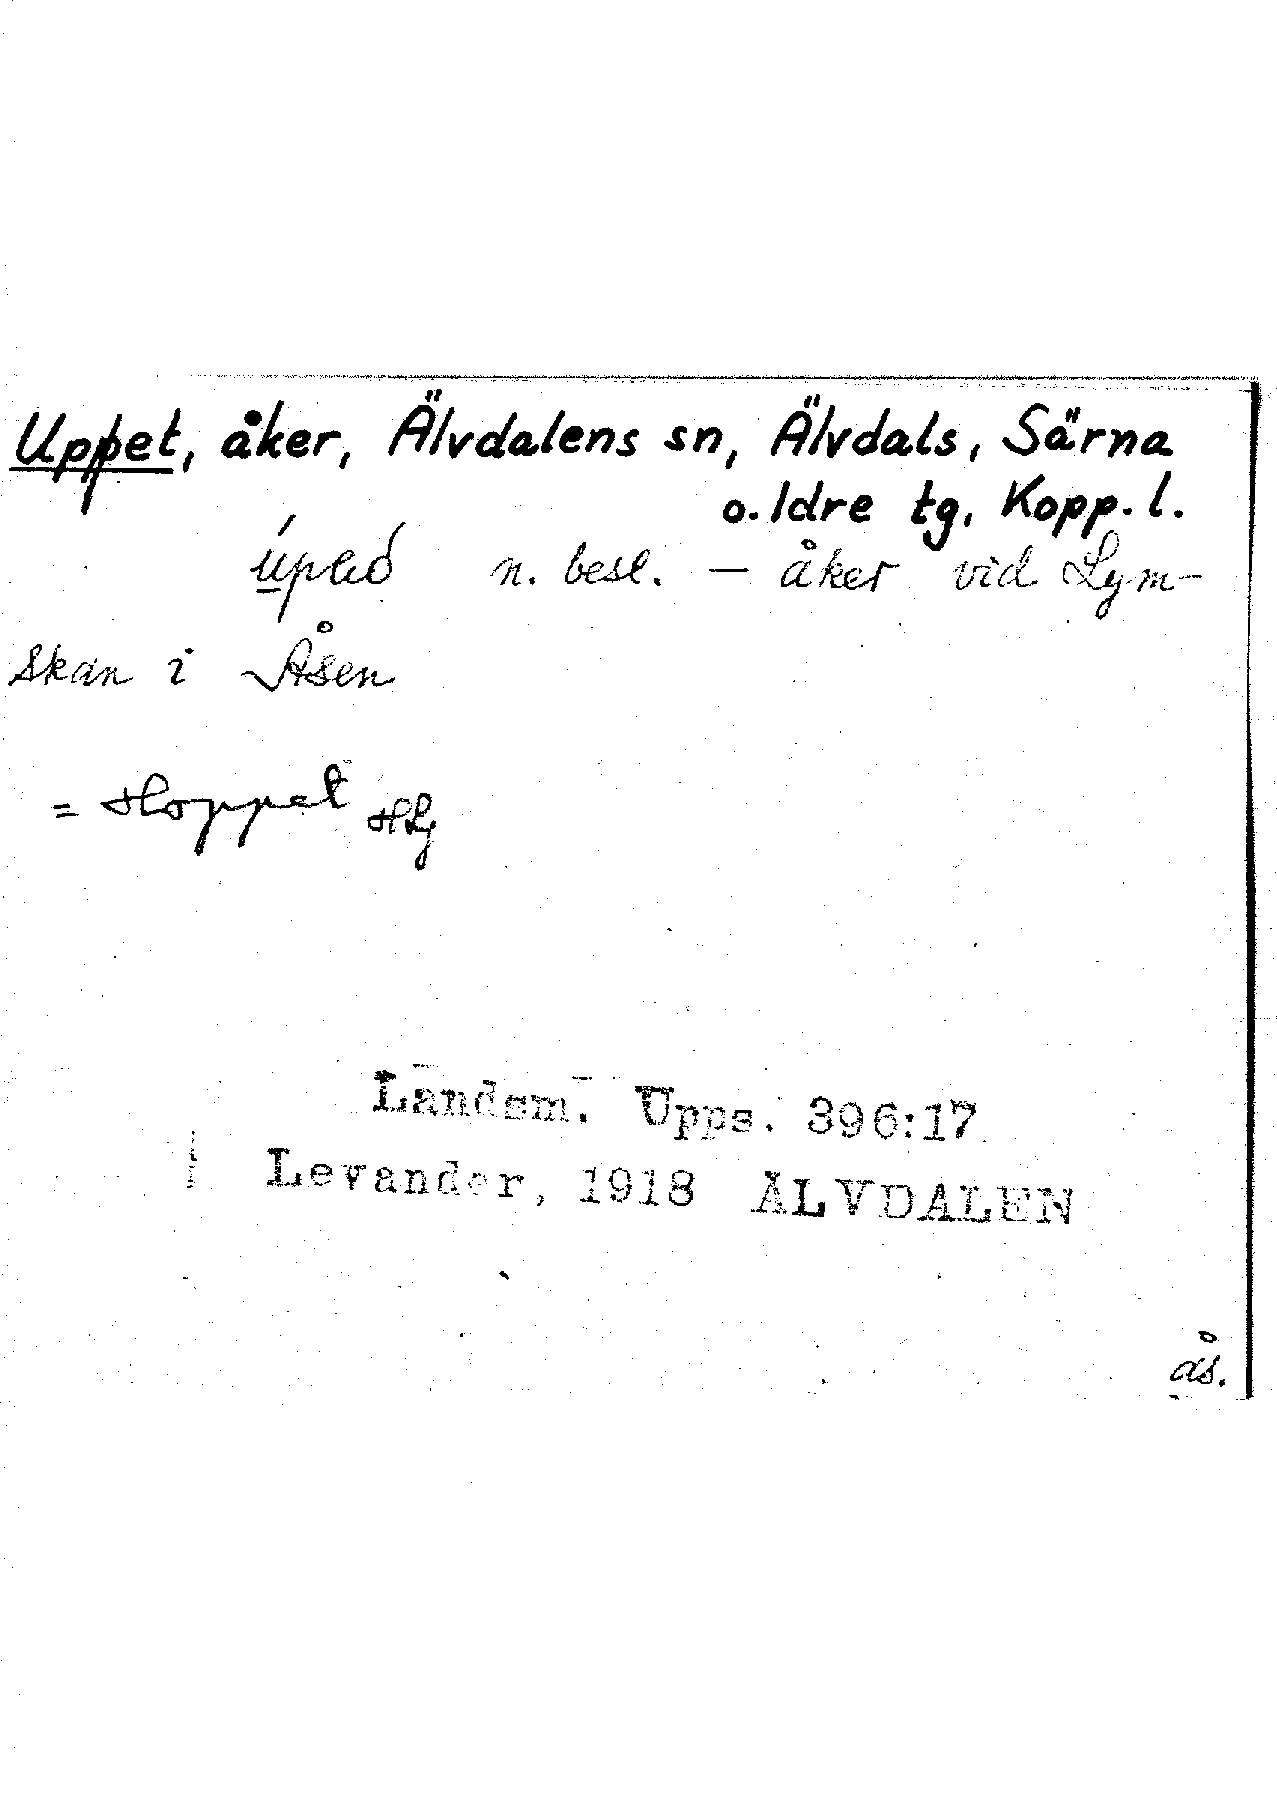 Uppet, åker, Älvdalens sn, Älvdals, Särna
o. Idre tg, Kopp. l.
n. besl. – åker vid Lym-
skan i Åsen
= Hoppet HLj
Landsm. Upps. 396:17
Levander, 1918 ÄLVDALEN
ås.